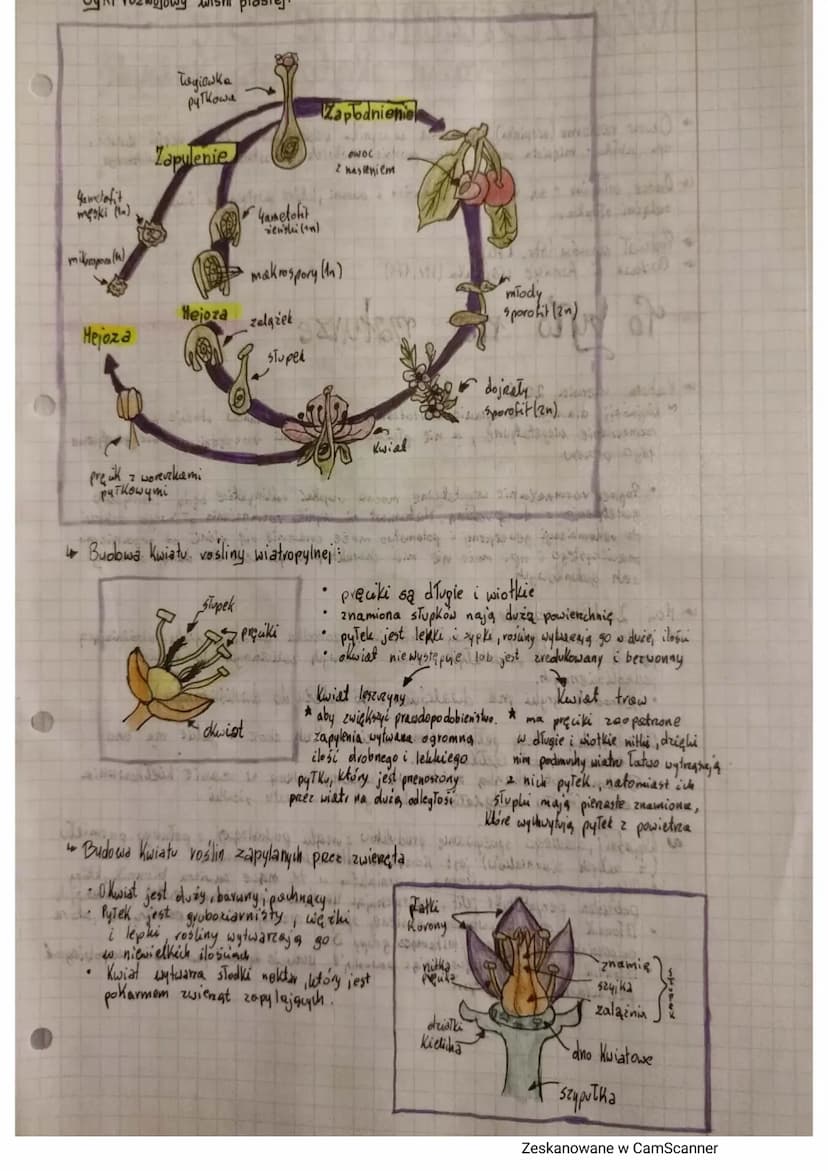 Cykl rozwojowy wiśni ptasiej:
Łagiewka
pyłkowa
Zapłodnienie
Zapylenie
owoc
z nasieniem
Gametofit
męski (1n)
Gametofit
żeński (1n)
mikrospora (1n)
makrospory (1n)
młody
sporofit (2n)
Mejoza
zalążek
Mejoza
słupek
dojrzały
sporofit (2n)
Kwiat
pręcik z woreczkami
pyłkowymi
↳ Budowa kwiatu rośliny wiatropylnej:
słupek
pręciki
okwiat
• pręciki są długie i wiotkie
• znamiona słupków mają dużą powierzchnię
• pyłek jest lekki i sypki, rośliny wytwarzają go w dużej ilości
• okwiat nie występuje lub jest zredukowany i bezwonny
Kwiat leszczyny
* aby zwiększyć prawdopodobieństwo
zapylenia wytwarza ogromną
ilość drobnego i lekkiego
pyłku, który jest przenoszony
przez wiatr na dużą odległość
Kwiat traw
* ma pręciki zaopatrzone
w długie i wiotkie nitki, dzięki
nim podmuchy wiatru łatwo wytrząsają
z nich pyłek, natomiast ich
słupki mają pierzaste znamiona,
które wychwytują pyłek z powietrza
↳ Budowa kwiatu roślin zapylanych przez zwierzęta
• Okwiat jest duży, barwny, pachnący
• Pyłek jest gruboziarnisty, ciężki
i lepki, rośliny wytwarzają go
w niewielkich ilościach
• Kwiat wytwarza słodki nektar, który jest
pokarmem zwierząt zapylających.
Płatki
korony
nitka
pręcika
działki
kielicha
znamię
szyjka
zalążnia
słupek
dno kwiatowe
szypułka
Zeskanowane w CamScanner